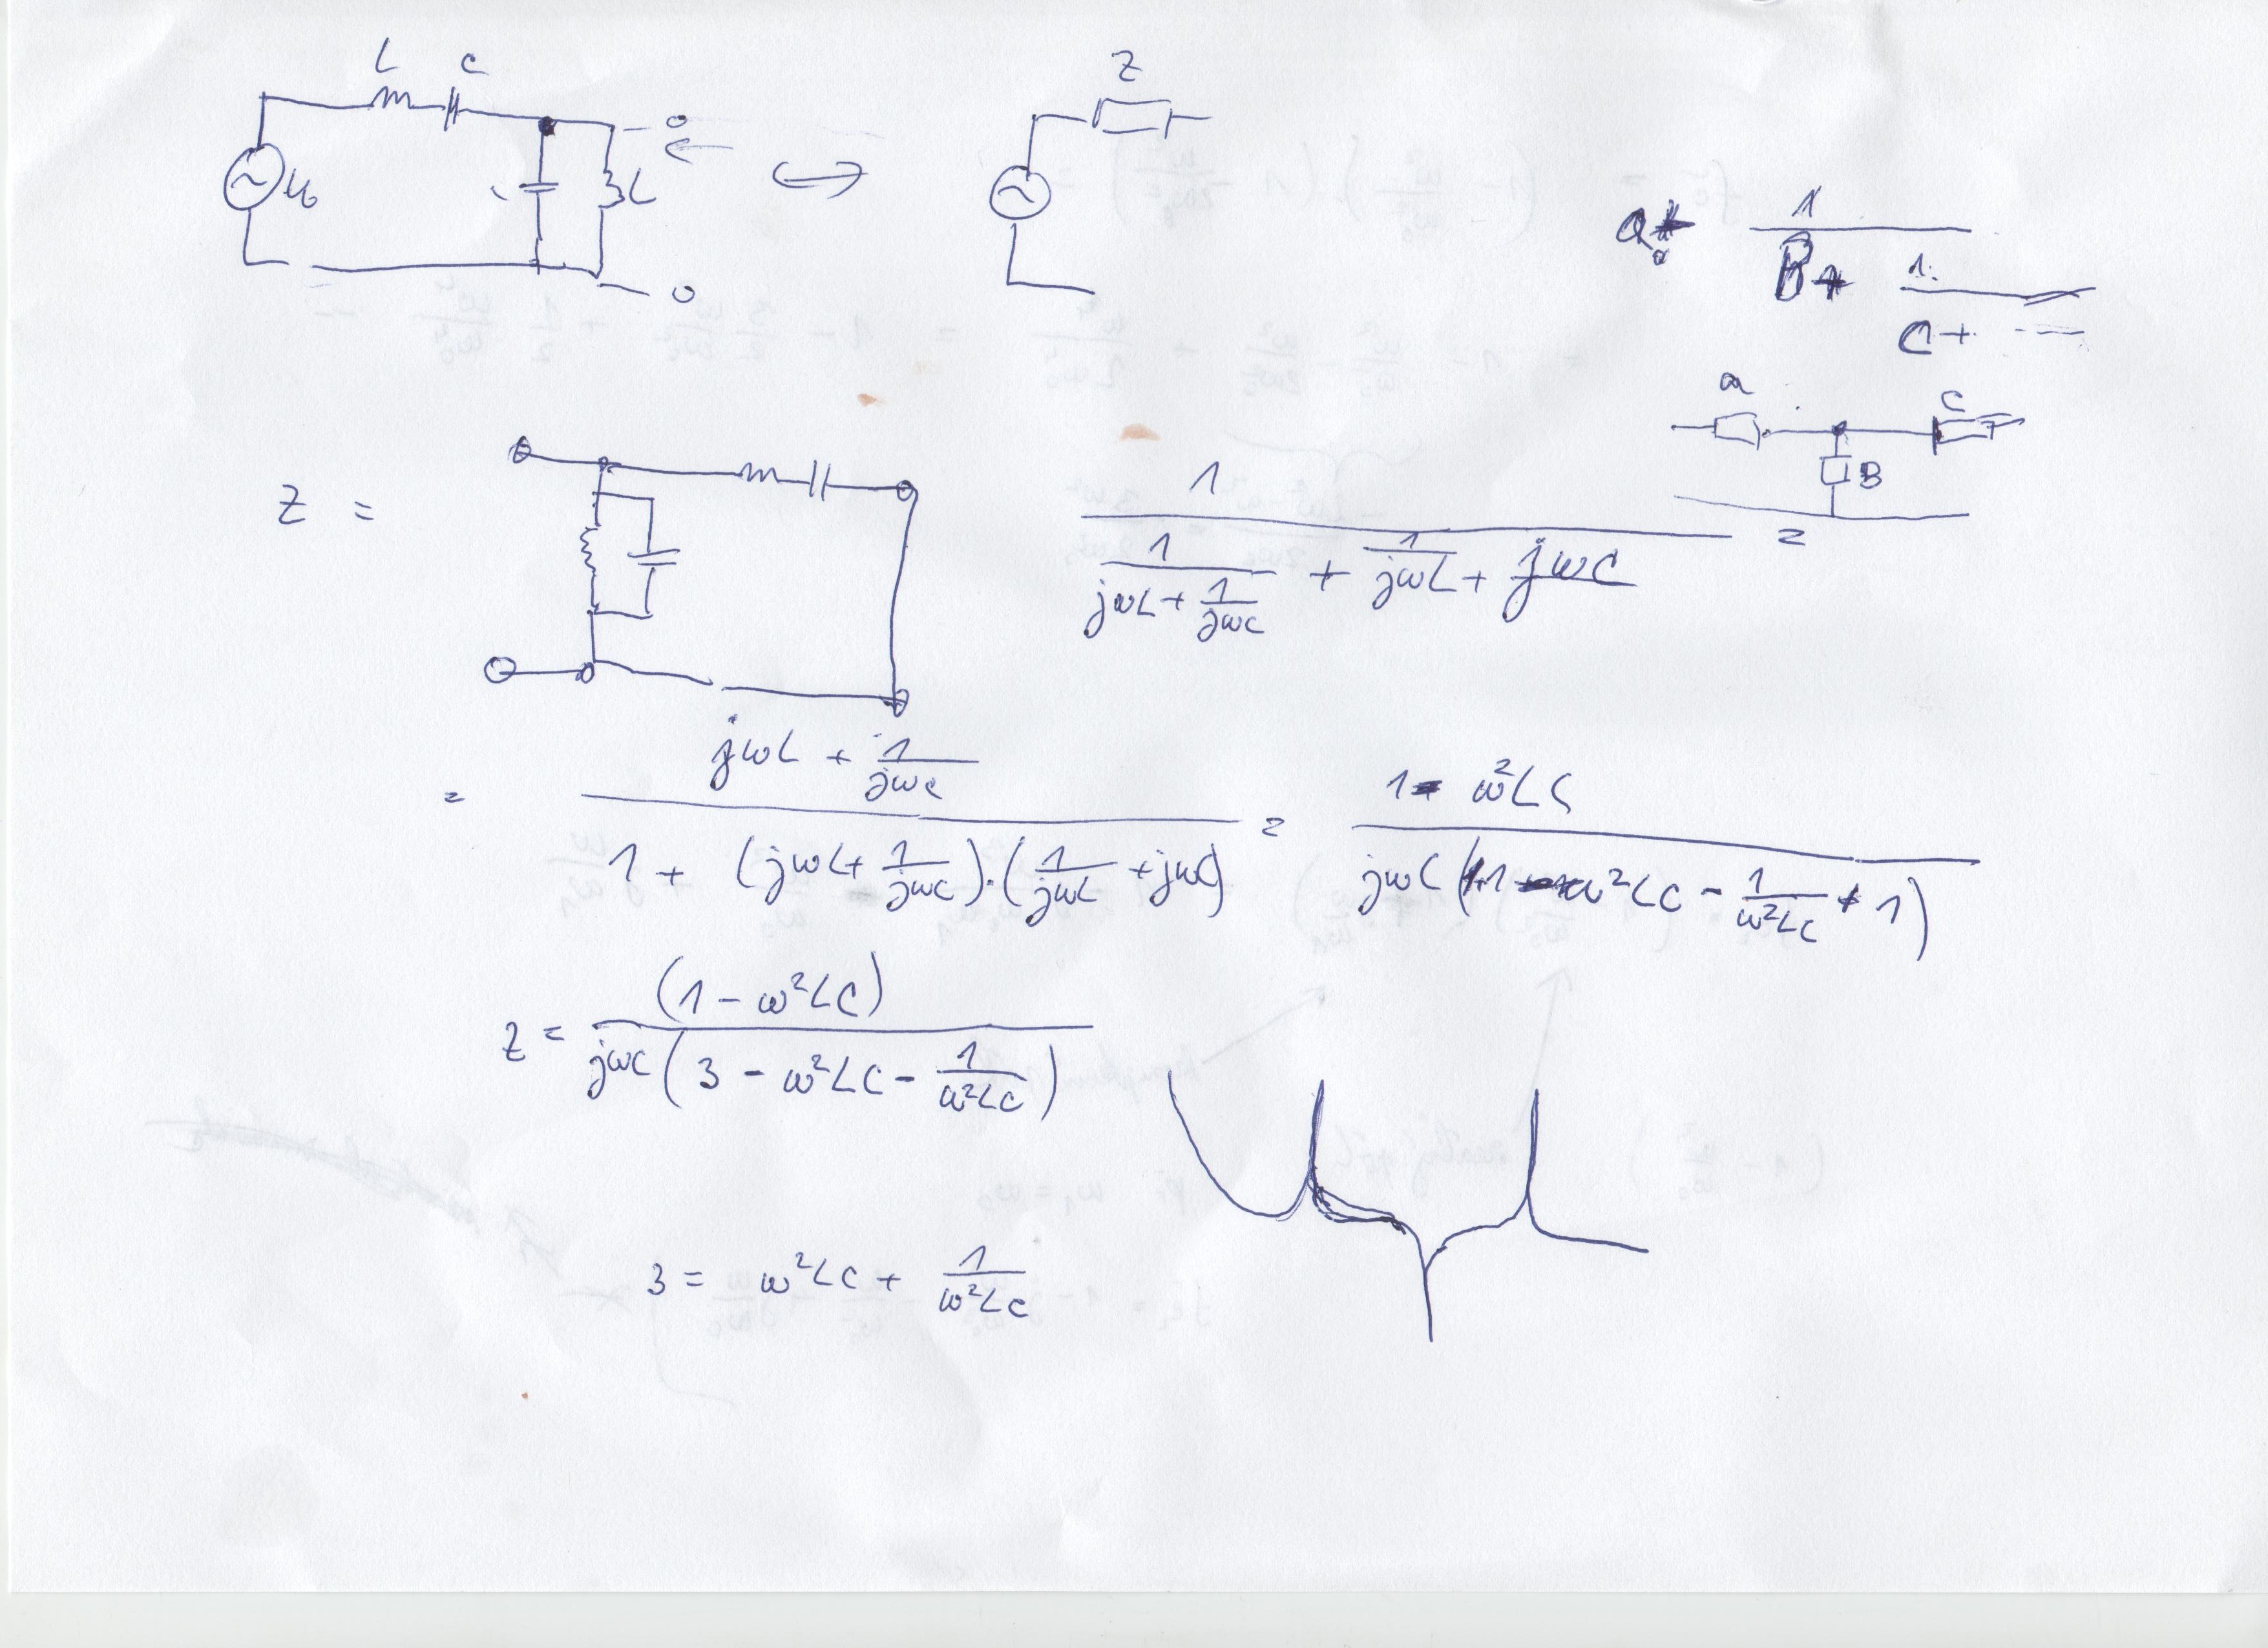 L C
U₀ L
Z
a + 1/(B + 1/(C +
a C
B
Z = 1/(1/(jωL + 1/(jωC)) + 1/(jωL) + jωC) =
= (jωL + 1/(jωC))/(1 + (jωL + 1/(jωC)).(1/(jωL) + jωC)) = (1 - ω²LC)/(jωC(+1 - ω²LC - 1/(ω²LC) + 1)
Z = (1 - ω²LC)/(jωC(3 - ω²LC - 1/(ω²LC)))
3 = ω²LC + 1/(ω²LC)